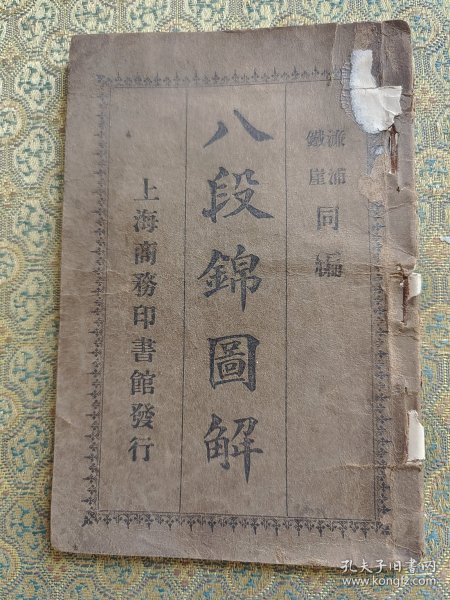 濂浦
鐵崖
同編
八段錦圖解
上海商務印書館發行
孔夫子旧书网
www.kongfz.com